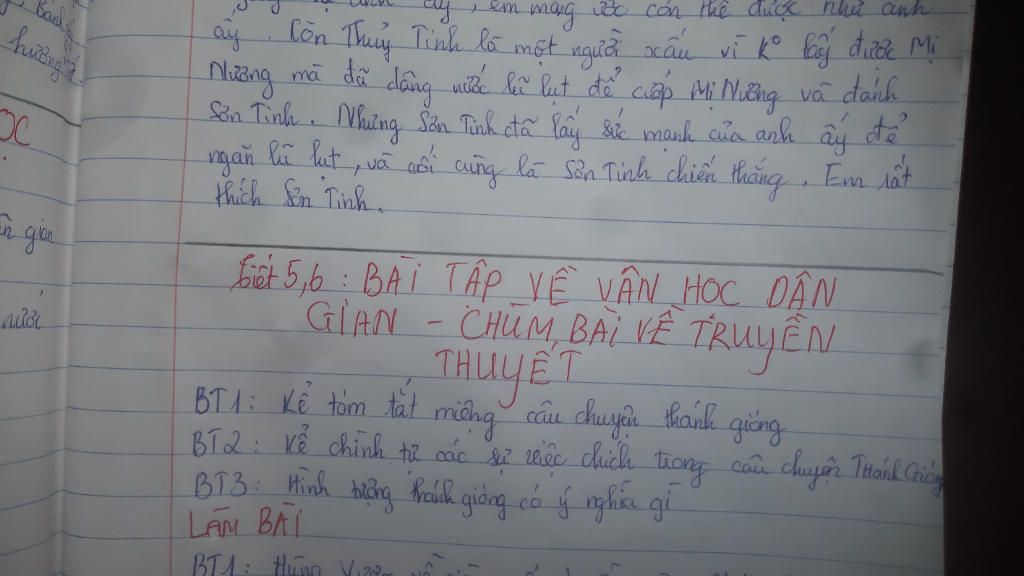 , Bánh
hương
OC
ân gian
nước
ấy, em mong ước còn thể được như anh
ấy. Còn Thuỷ Tinh là một người xấu vì Kº lấy được Mị
Nương mà đã dâng nước lũ lụt để cướp Mị Nương và đánh
Sơn Tinh. Nhưng Sơn Tinh đã lấy sức mạnh của anh ấy để
ngăn lũ lụt, và cuối cùng là Sơn Tinh chiến thắng. Em rất
thích Sơn Tinh.
Tiết 5,6: BÀI TẬP VỀ VĂN HỌC DÂN
GIAN - CHÙM BÀI VỀ TRUYỀN
THUYẾT
BT1: Kể tóm tắt miệng câu chuyện thánh gióng
BT2: Kể chính từ các sự việc chích trong câu chuyện Thánh Gióng
BT3: Hình tượng thánh gióng có ý nghĩa gì
LÀM BÀI
BT1: Hùng Vương